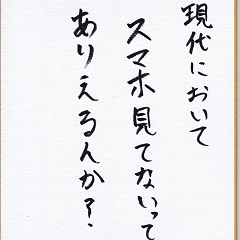 現代において
スマホ見てないって
ありえるんか?